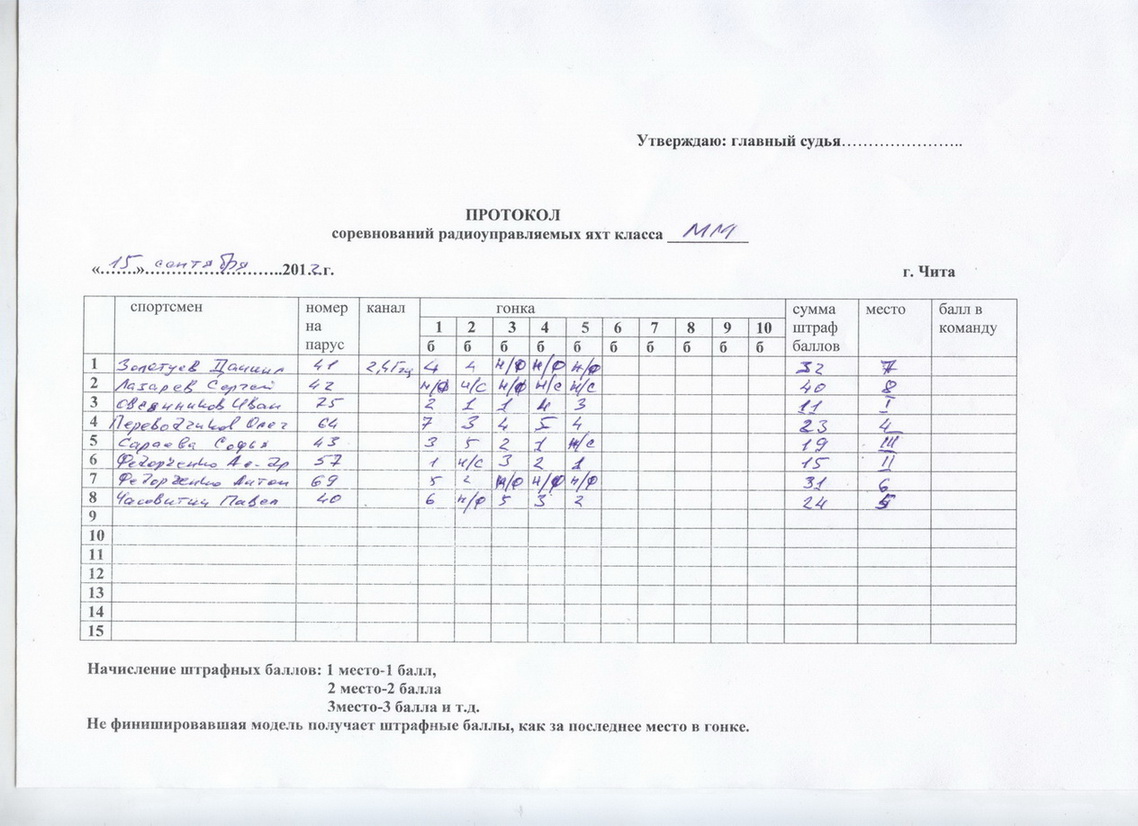 Утверждаю: главный судья…………………..
ПРОТОКОЛ
соревнований радиоуправляемых яхт класса ММ
«15» сентября 2012 г. г. Чита
спортсмен номер на парус канал гонка сумма штраф баллов место балл в команду
1 2 3 4 5 6 7 8 9 10
б б б б б б б б б б
1 Золотуев Даниил 41 2,4Ггц 4 4 н/ф н/ф н/ф 32 7
2 Лазарев Сергей 42 н/ф н/с н/ф н/с н/с 40 8
3 Овсянников Иван 25 2 1 1 4 3 11 I
4 Переводчиков Олег 64 7 3 4 5 4 23 4
5 Сараева Софья 43 3 5 2 1 н/с 19 III
6 Федорченко Ал-др 57 1 н/с 3 2 1 15 II
7 Федорченко Антон 69 5 2 н/ф н/ф н/ф 31 6
8 Часовитин Павел 40 6 н/ф 5 3 2 24 5
9
10
11
12
13
14
15
Начисление штрафных баллов: 1 место-1 балл,
2 место-2 балла
3место-3 балла и т.д.
Не финишировавшая модель получает штрафные баллы, как за последнее место в гонке.